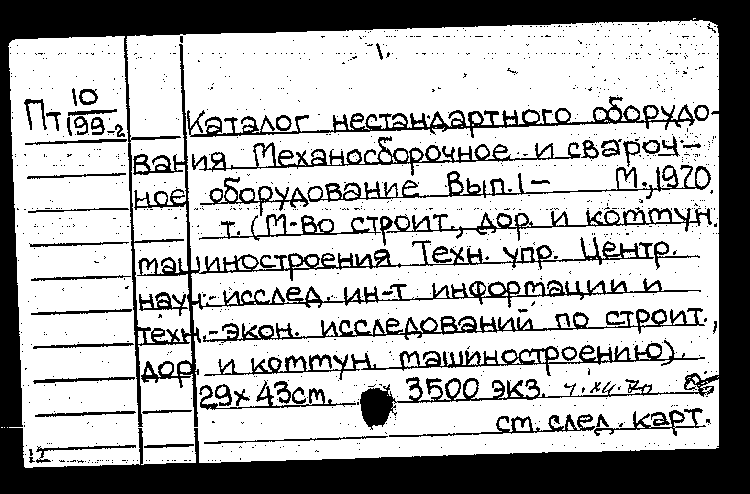 1.
Пт 10/199-2
Каталог нестандартного оборудо-
вания. Механосборочное и свароч-
ное оборудование. Вып. 1 – М., 1970.
т. (М-во строит., дор. и коммун.
машиностроения. Техн. упр. Центр.
науч.-исслед. ин-т информации и
техн.-экон. исследований по строит.,
дор. и коммун. машиностроению).
29х43см. 3500 экз. 4.XII.70
см. след. карт.
12